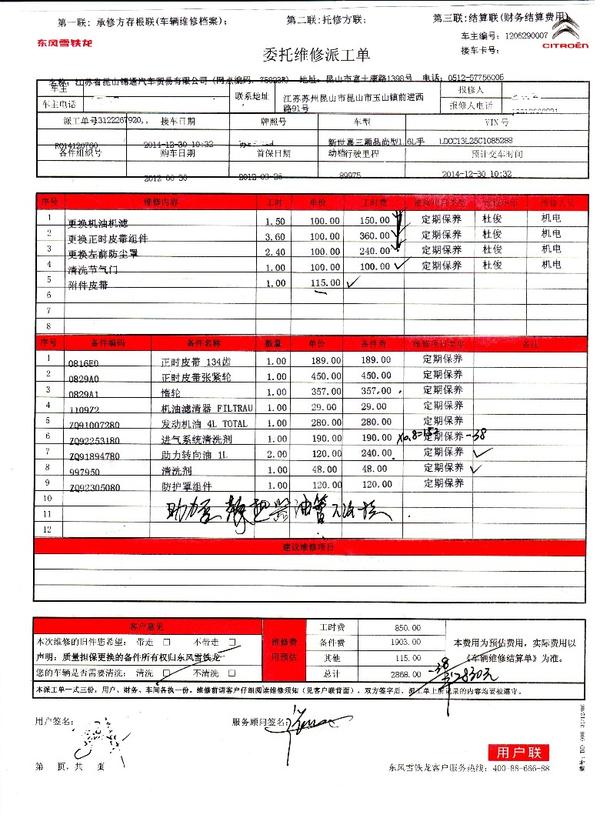 第一联: 承修方存根联(车辆维修档案); 第二联:托修方联: 第三联:结算联(财务结算费用)
东风雪铁龙 委托维修派工单 车主编号:1206290007 CITROËN
接车卡号:
名称:江苏省昆山 汽车贸易有限公司 (网点编码: 75802R) 地址: 昆山市富士康路1398号 电话:0512-57756006
车主 报修人
车主电话 联系地址 江苏苏州昆山市昆山市玉山镇前进西路91号 报修人电话
派工单号 3122267920,, 接车日期 牌照号 车型 VIN 号
RO14120760 2014-12-30 10:32 新世嘉三厢品尚型1.6L手动档 LDCC13L25C1085288
备件组织号 购车日期 首保日期 行驶里程 预计交车时间
2012-06-30 89975 2014-12-30 10:32
序号 维修内容 工时 单价 工时费
1 更换机油机滤 1.50 100.00 150.00 定期保养 杜俊 机电
2 更换正时皮带组件 3.60 100.00 360.00 定期保养 杜俊 机电
3 更换左前防尘罩 2.40 100.00 240.00 定期保养 杜俊 机电
4 清洗节气门 1.00 100.00 100.00 定期保养 杜俊 机电
5 附件皮带 1.00 115.00
6
7
8
序号 备件编码 备件名称 数量 单价 备件费 维修项目类型 备注
1 0816E0 正时皮带 134齿 1.00 189.00 189.00 定期保养
2 0829A0 正时皮带张紧轮 1.00 450.00 450.00 定期保养
3 0829A1 惰轮 1.00 357.00 357.00 定期保养
4 1109Z2 机油滤清器 FILTRAU 1.00 29.00 29.00 定期保养
5 ZQ91007280 发动机油 4L TOTAL 1.00 280.00 280.00 定期保养
6 ZQ92253180 进气系统清洗剂 1.00 190.00 190.00 x0.8=152 定期保养 -38
7 ZQ91894780 助力转向油 1L 2.00 120.00 240.00 定期保养
8 997950 清洗剂 1.00 48.00 48.00 定期保养
9 ZQ92305080 防护罩组件 1.00 120.00 120.00 定期保养
10
11
12
建议维修项目
客户意见 维修费用预估 工时费 850.00 本费用为预估费用, 实际费用以《车辆维修结算单》为准。
本次维修的旧件您希望: 带走 □ 不带走 □ 备件费 1903.00
声明: 质量担保更换的备件所有权归东风雪铁龙 其他 115.00
您的车辆是否需要清洗: 清洗 □ 不清洗 □ 总计 2868.00 -38 2830元
本派工单一式三份, 用户、财务、车间各执一份, 维修前请客户仔细阅读维修须知(见客户联背面), 双方签字后, 派工单上所记录的内容均要被遵守。
用户签名: 服务顾问签名:
用户联
第 页, 共 页 东风雪铁龙客户服务热线: 400-88-666-88